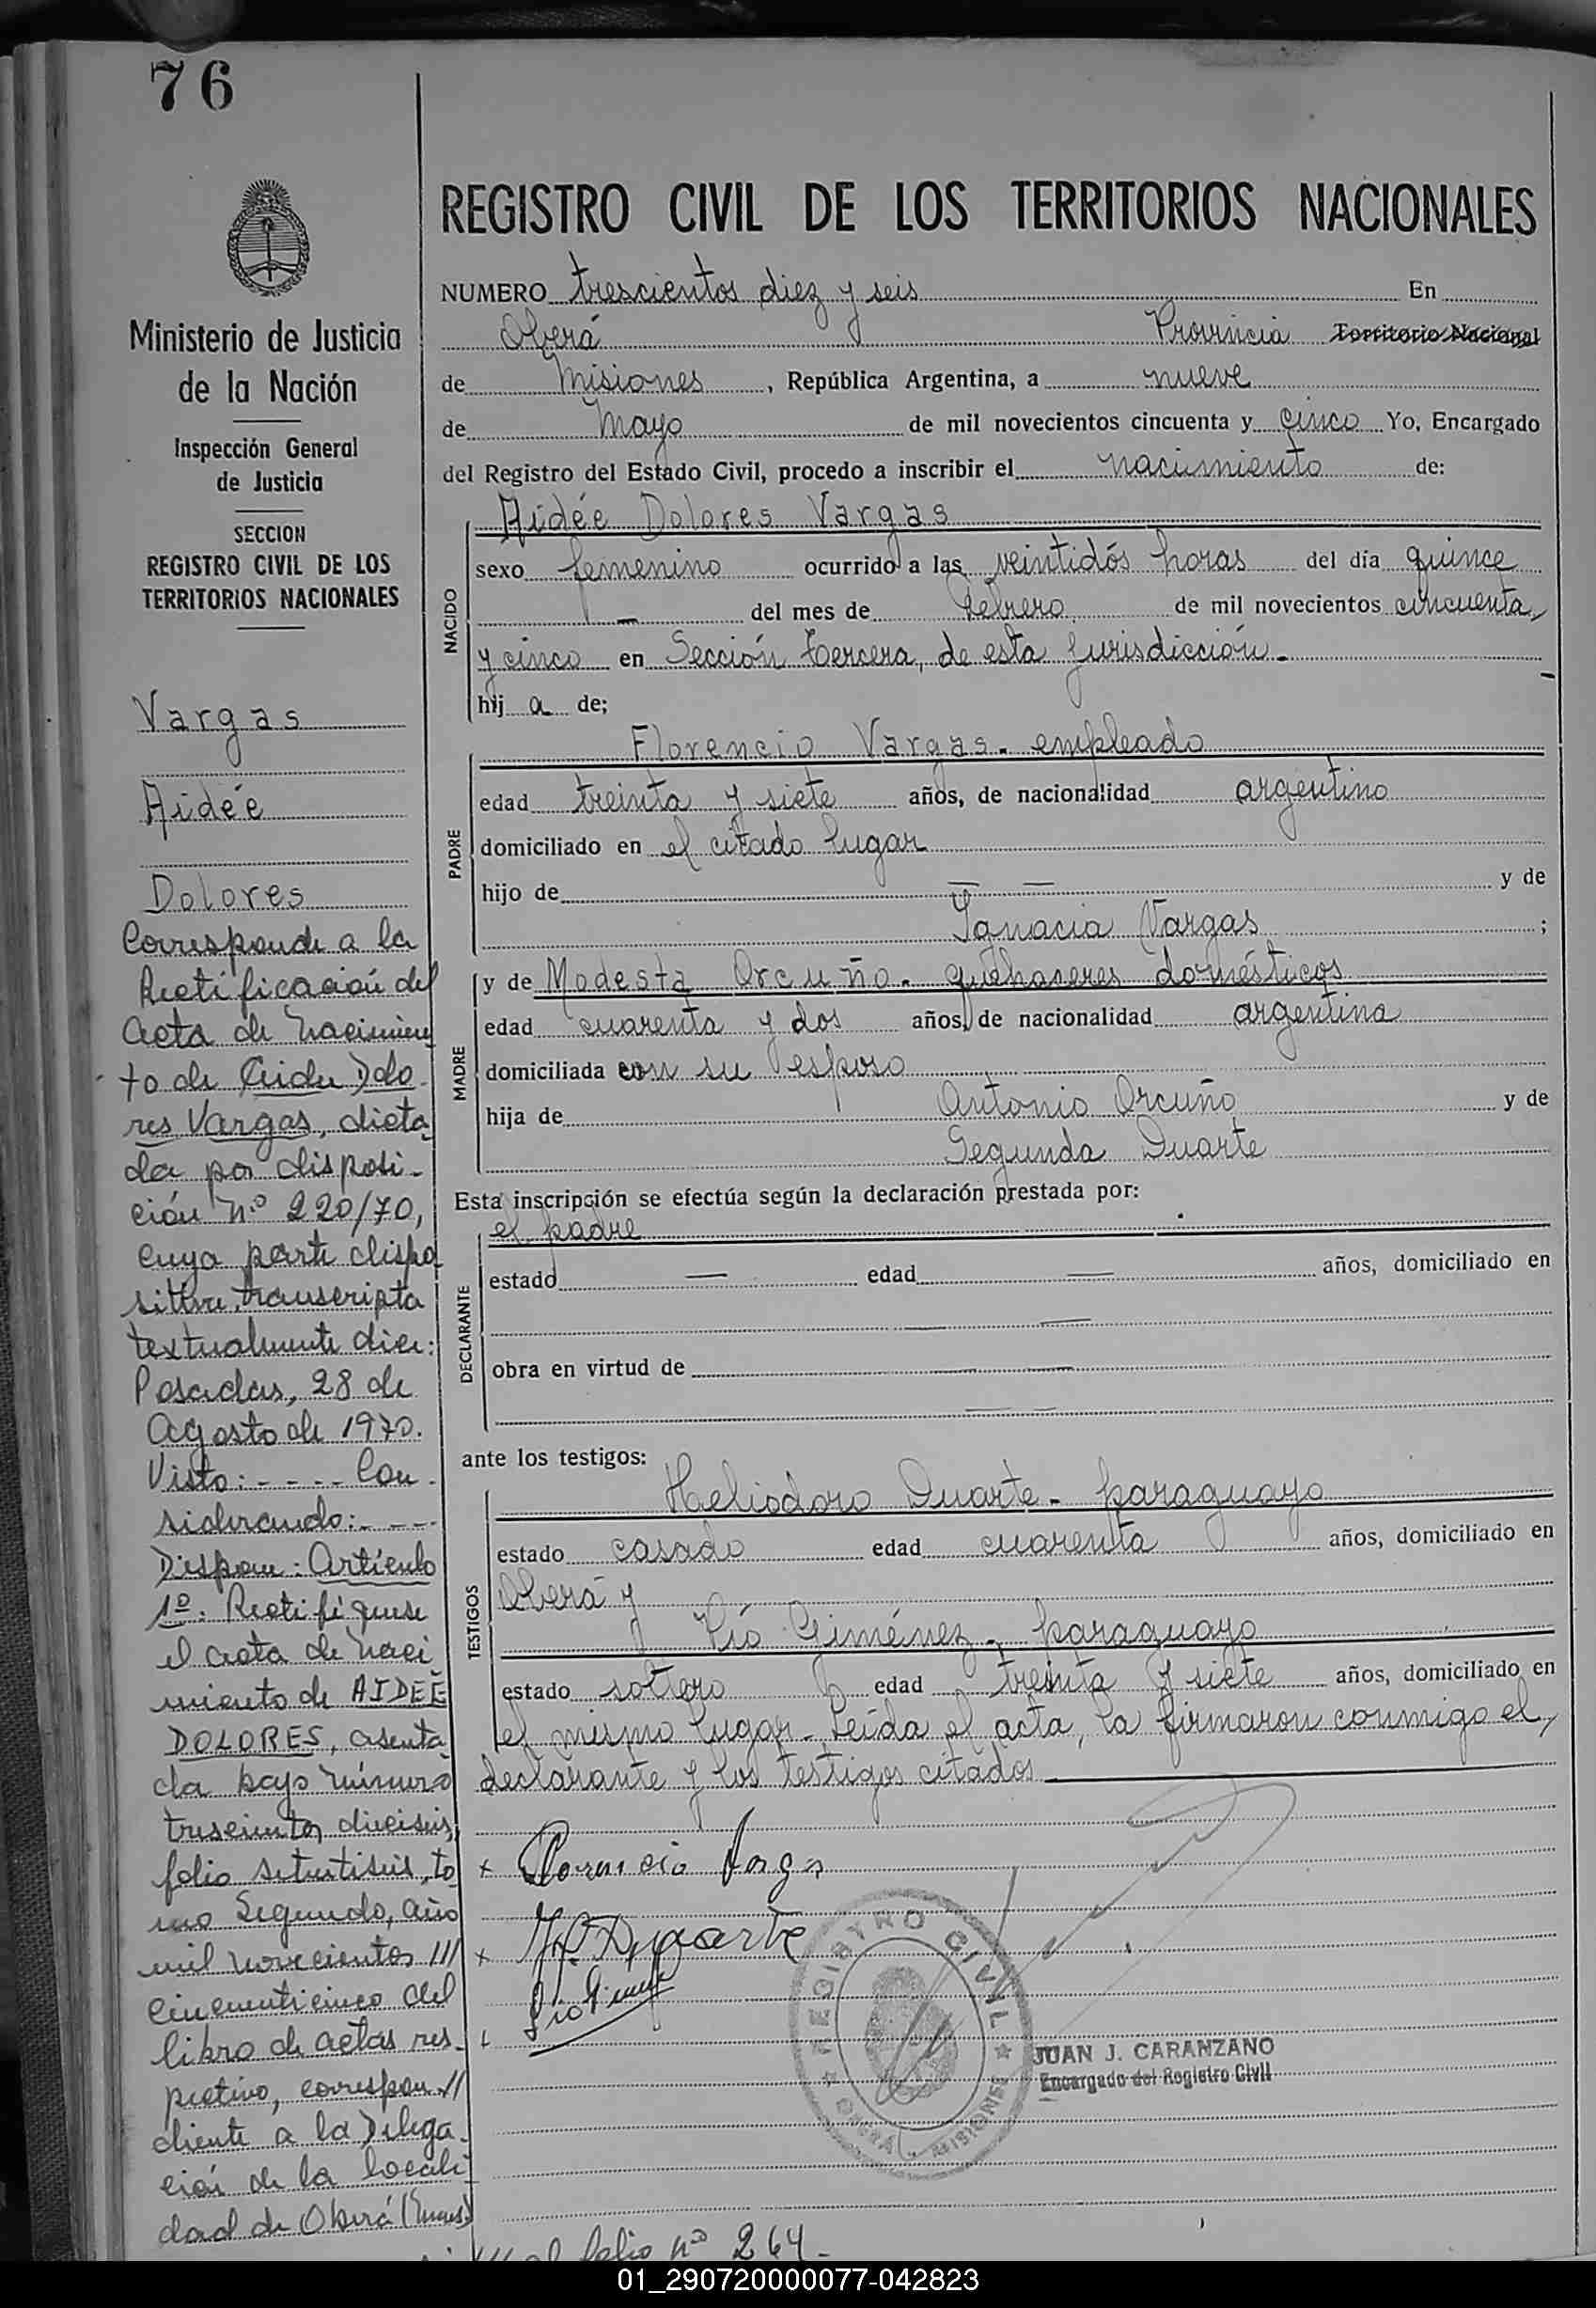 76
Ministerio de Justicia
de la Nación
Inspección General
de Justicia
SECCION
REGISTRO CIVIL DE LOS
TERRITORIOS NACIONALES
Vargas
Aidée
Dolores
Corresponde a la
Rectificación del
acta de nacimien
to de Aidee Dolo-
res Vargas, dicta
da por disposi-
ción nº 220/70,
cuya parte dispo
sitiva, transcripta
textualmente dice:
Posadas, 28 de
Agosto de 1970.
Visto: - - - - Con-
siderando: - - -
Dispone: Artículo
1º: Rectifíquese
el acta de naci
miento de AIDEE
DOLORES, asenta
da bajo número
trescientos dieciseis,
folio setentiseis, to
mo Segundo, año
mil novecientos ///
cincuenticinco del
libro de actas res-
pectivo, correspon//
diente a la Delega-
ción de la locali
dad de Oberá (Mnes.)
REGISTRO CIVIL DE LOS TERRITORIOS NACIONALES
NUMERO trescientos diez y seis En
Oberá Provincia Territorio Nacional
de Misiones, República Argentina, a nueve
de Mayo de mil novecientos cincuenta y cinco Yo, Encargado
del Registro del Estado Civil, procedo a inscribir el nacimiento de:
NACIDO
Aidée Dolores Vargas
sexo femenino ocurrido a las veintidós horas del día quince
— del mes de febrero de mil novecientos cincuenta
y cinco en Sección tercera, de esta jurisdicción.-
hij a de;
PADRE
Florencio Vargas. empleado
edad treinta y siete años, de nacionalidad argentino
domiciliado en el citado lugar
hijo de — — y de
Ignacia Vargas ;
MADRE
y de Modesta Orcuño. quehaseres domésticos
edad cuarenta y dos años, de nacionalidad argentina
domiciliada con su esposo
hija de Antonio Orcuño y de
Segunda Duarte
Esta inscripción se efectúa según la declaración prestada por:
DECLARANTE
el padre
estado — edad — años, domiciliado en
— —
obra en virtud de — —
— —
ante los testigos:
TESTIGOS
Heliodoro Duarte- paraguayo
estado casado edad cuarenta años, domiciliado en
Oberá y
Pío Giménez, paraguayo
estado soltero edad treinta y siete años, domiciliado en
el mismo lugar. Leída el acta, la firmaron conmigo el,
declarante y los testigos citados
x Florencio Vargas
x H. Duarte
Pio Gimenez
REGISTRO CIVIL
OBERÁ - MISIONES
JUAN J. CARANZANO
Encargado del Registro Civil
al folio nº 264-
01_290720000077-042823